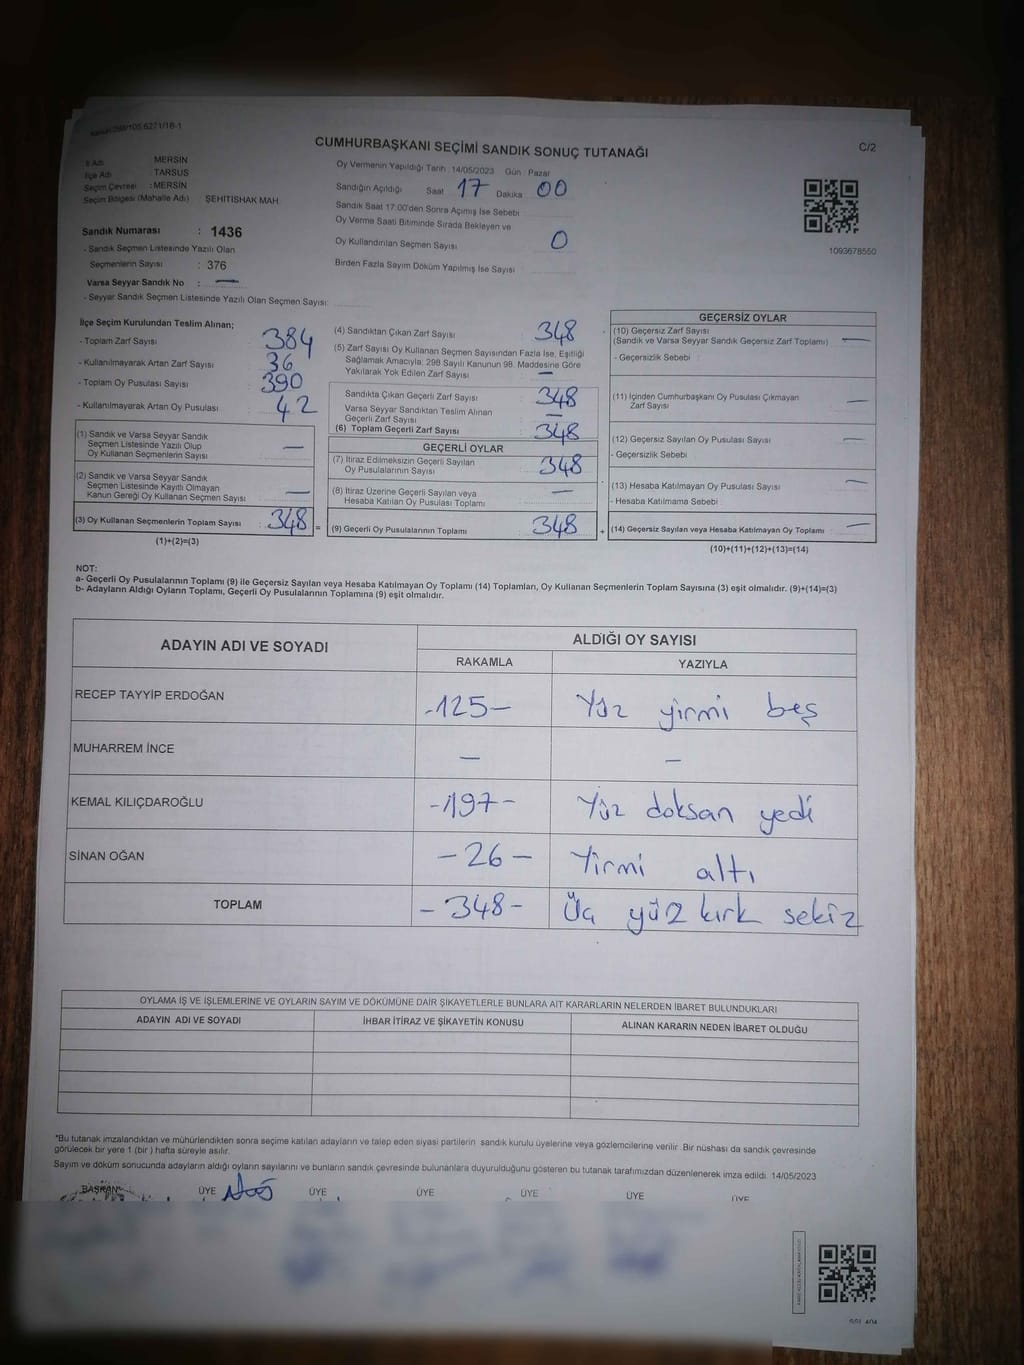 CUMHURBAŞKANI SEÇİMİ SANDIK SONUÇ TUTANAĞI
C/2
İl Adı MERSİN
İlçe Adı TARSUS
Seçim Çevresi : MERSİN
Seçim Bölgesi (Mahalle Adı) ŞEHİTİSHAK MAH.
Oy Vermenin Yapıldığı Tarih :14/05/2023 Gün : Pazar
Sandığın Açıldığı Saat 17 Dakika 00
Sandık Saat 17:00'den Sonra Açılmış İse Sebebi
Oy Verme Saati Bitiminde Sırada Bekleyen ve
Oy Kullandırılan Seçmen Sayısı 0
Birden Fazla Sayım Döküm Yapılmış İse Sayısı
1093678550
Sandık Numarası : 1436
- Sandık Seçmen Listesinde Yazılı Olan
Seçmenlerin Sayısı : 376
Varsa Seyyar Sandık No : —
- Seyyar Sandık Seçmen Listesinde Yazılı Olan Seçmen Sayısı:
İlçe Seçim Kurulundan Teslim Alınan;
- Toplam Zarf Sayısı 384
- Kullanılmayarak Artan Zarf Sayısı 36
- Toplam Oy Pusulası Sayısı 390
- Kullanılmayarak Artan Oy Pusulası 42
(1) Sandık ve Varsa Seyyar Sandık
Seçmen Listesinde Yazılı Olup
Oy Kullanan Seçmenlerin Sayısı —
(2) Sandık ve Varsa Seyyar Sandık
Seçmen Listesinde Kayıtlı Olmayan
Kanun Gereği Oy Kullanan Seçmen Sayısı —
(3) Oy Kullanan Seçmenlerin Toplam Sayısı : 348 =
(1)+(2)=(3)
(4) Sandıktan Çıkan Zarf Sayısı 348
(5) Zarf Sayısı Oy Kullanan Seçmen Sayısından Fazla İse, Eşitliği
Sağlamak Amacıyla; 298 Sayılı Kanunun 98. Maddesine Göre
Yakılarak Yok Edilen Zarf Sayısı —
Sandıkta Çıkan Geçerli Zarf Sayısı 348
Varsa Seyyar Sandıktan Teslim Alınan
Geçerli Zarf Sayısı —
(6) Toplam Geçerli Zarf Sayısı 348
GEÇERLİ OYLAR
(7) İtiraz Edilmeksizin Geçerli Sayılan
Oy Pusulalarının Sayısı 348
(8) İtiraz Üzerine Geçerli Sayılan veya
Hesaba Katılan Oy Pusulası Toplamı —
(9) Geçerli Oy Pusulalarının Toplamı 348 +
GEÇERSİZ OYLAR
(10) Geçersiz Zarf Sayısı
(Sandık ve Varsa Seyyar Sandık Geçersiz Zarf Toplamı) —
- Geçersizlik Sebebi
(11) İçinden Cumhurbaşkanı Oy Pusulası Çıkmayan
Zarf Sayısı —
(12) Geçersiz Sayılan Oy Pusulası Sayısı —
- Geçersizlik Sebebi
(13) Hesaba Katılmayan Oy Pusulası Sayısı —
- Hesaba Katılmama Sebebi
(14) Geçersiz Sayılan veya Hesaba Katılmayan Oy Toplamı —
(10)+(11)+(12)+(13)=(14)
NOT:
a- Geçerli Oy Pusulalarının Toplamı (9) ile Geçersiz Sayılan veya Hesaba Katılmayan Oy Toplamı (14) Toplamları, Oy Kullanan Seçmenlerin Toplam Sayısına (3) eşit olmalıdır. (9)+(14)=(3)
b- Adayların Aldığı Oyların Toplamı, Geçerli Oy Pusulalarının Toplamına (9) eşit olmalıdır.
ADAYIN ADI VE SOYADI
ALDIĞI OY SAYISI
RAKAMLA YAZIYLA
RECEP TAYYİP ERDOĞAN -125- Yüz yirmi beş
MUHARREM İNCE — —
KEMAL KILIÇDAROĞLU -197- Yüz doksan yedi
SİNAN OĞAN -26- Yirmi altı
TOPLAM -348- Üç yüz kırk sekiz
OYLAMA İŞ VE İŞLEMLERİNE VE OYLARIN SAYIM VE DÖKÜMÜNE DAİR ŞİKAYETLERLE BUNLARA AİT KARARLARIN NELERDEN İBARET BULUNDUKLARI
ADAYIN ADI VE SOYADI İHBAR İTİRAZ VE ŞİKAYETİN KONUSU ALINAN KARARIN NEDEN İBARET OLDUĞU
*Bu tutanak imzalandıktan ve mühürlendikten sonra seçime katılan adayların ve talep eden siyasi partilerin sandık kurulu üyelerine veya gözlemcilerine verilir. Bir nüshası da sandık çevresinde
görülecek bir yere 1 (bir ) hafta süreyle asılır.
Sayım ve döküm sonucunda adayların aldığı oyların sayılarını ve bunların sandık çevresinde bulunanlara duyurulduğunu gösteren bu tutanak tarafımızdan düzenlenerek imza edildi. 14/05/2023
BAŞKAN ÜYE ÜYE ÜYE ÜYE ÜYE ÜYE